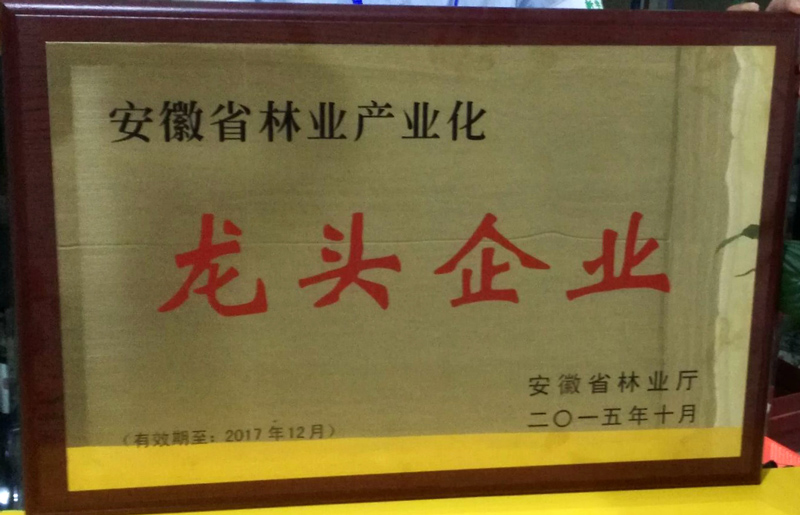 安徽省林业产业化
龙头企业
安徽省林业厅
二〇一五年十月
（有效期至：2017年12月）